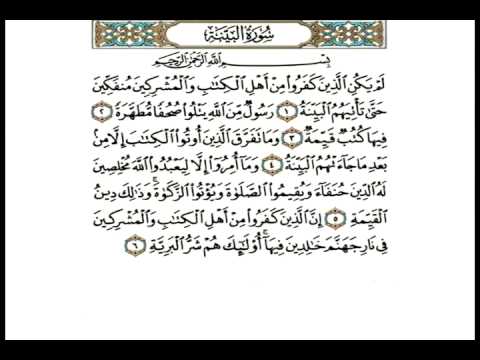 سُورَةُ البَيِّنَةِ
بِسْمِ اللَّهِ الرَّحْمَٰنِ الرَّحِيمِ
لَمْ يَكُنِ الَّذِينَ كَفَرُوا مِنْ أَهْلِ الْكِتَابِ وَالْمُشْرِكِينَ مُنفَكِّينَ
حَتَّىٰ تَأْتِيَهُمُ الْبَيِّنَةُ ١ رَسُولٌ مِّنَ اللَّهِ يَتْلُوا صُحُفًا مُّطَهَّرَةً ٢
فِيهَا كُتُبٌ قَيِّمَةٌ ٣ وَمَا تَفَرَّقَ الَّذِينَ أُوتُوا الْكِتَابَ إِلَّا مِنْ
بَعْدِ مَا جَاءَتْهُمُ الْبَيِّنَةُ ٤ وَمَا أُمِرُوا إِلَّا لِيَعْبُدُوا اللَّهَ مُخْلِصِينَ
لَهُ الدِّينَ حُنَفَاءَ وَيُقِيمُوا الصَّلَوٰةَ وَيُؤْتُوا الزَّكَوٰةَ ۚ وَذَٰلِكَ دِينُ
الْقَيِّمَةِ ٥ إِنَّ الَّذِينَ كَفَرُوا مِنْ أَهْلِ الْكِتَابِ وَالْمُشْرِكِينَ
فِي نَارِ جَهَنَّمَ خَالِدِينَ فِيهَا ۚ أُولَٰئِكَ هُمْ شَرُّ الْبَرِيَّةِ ٦